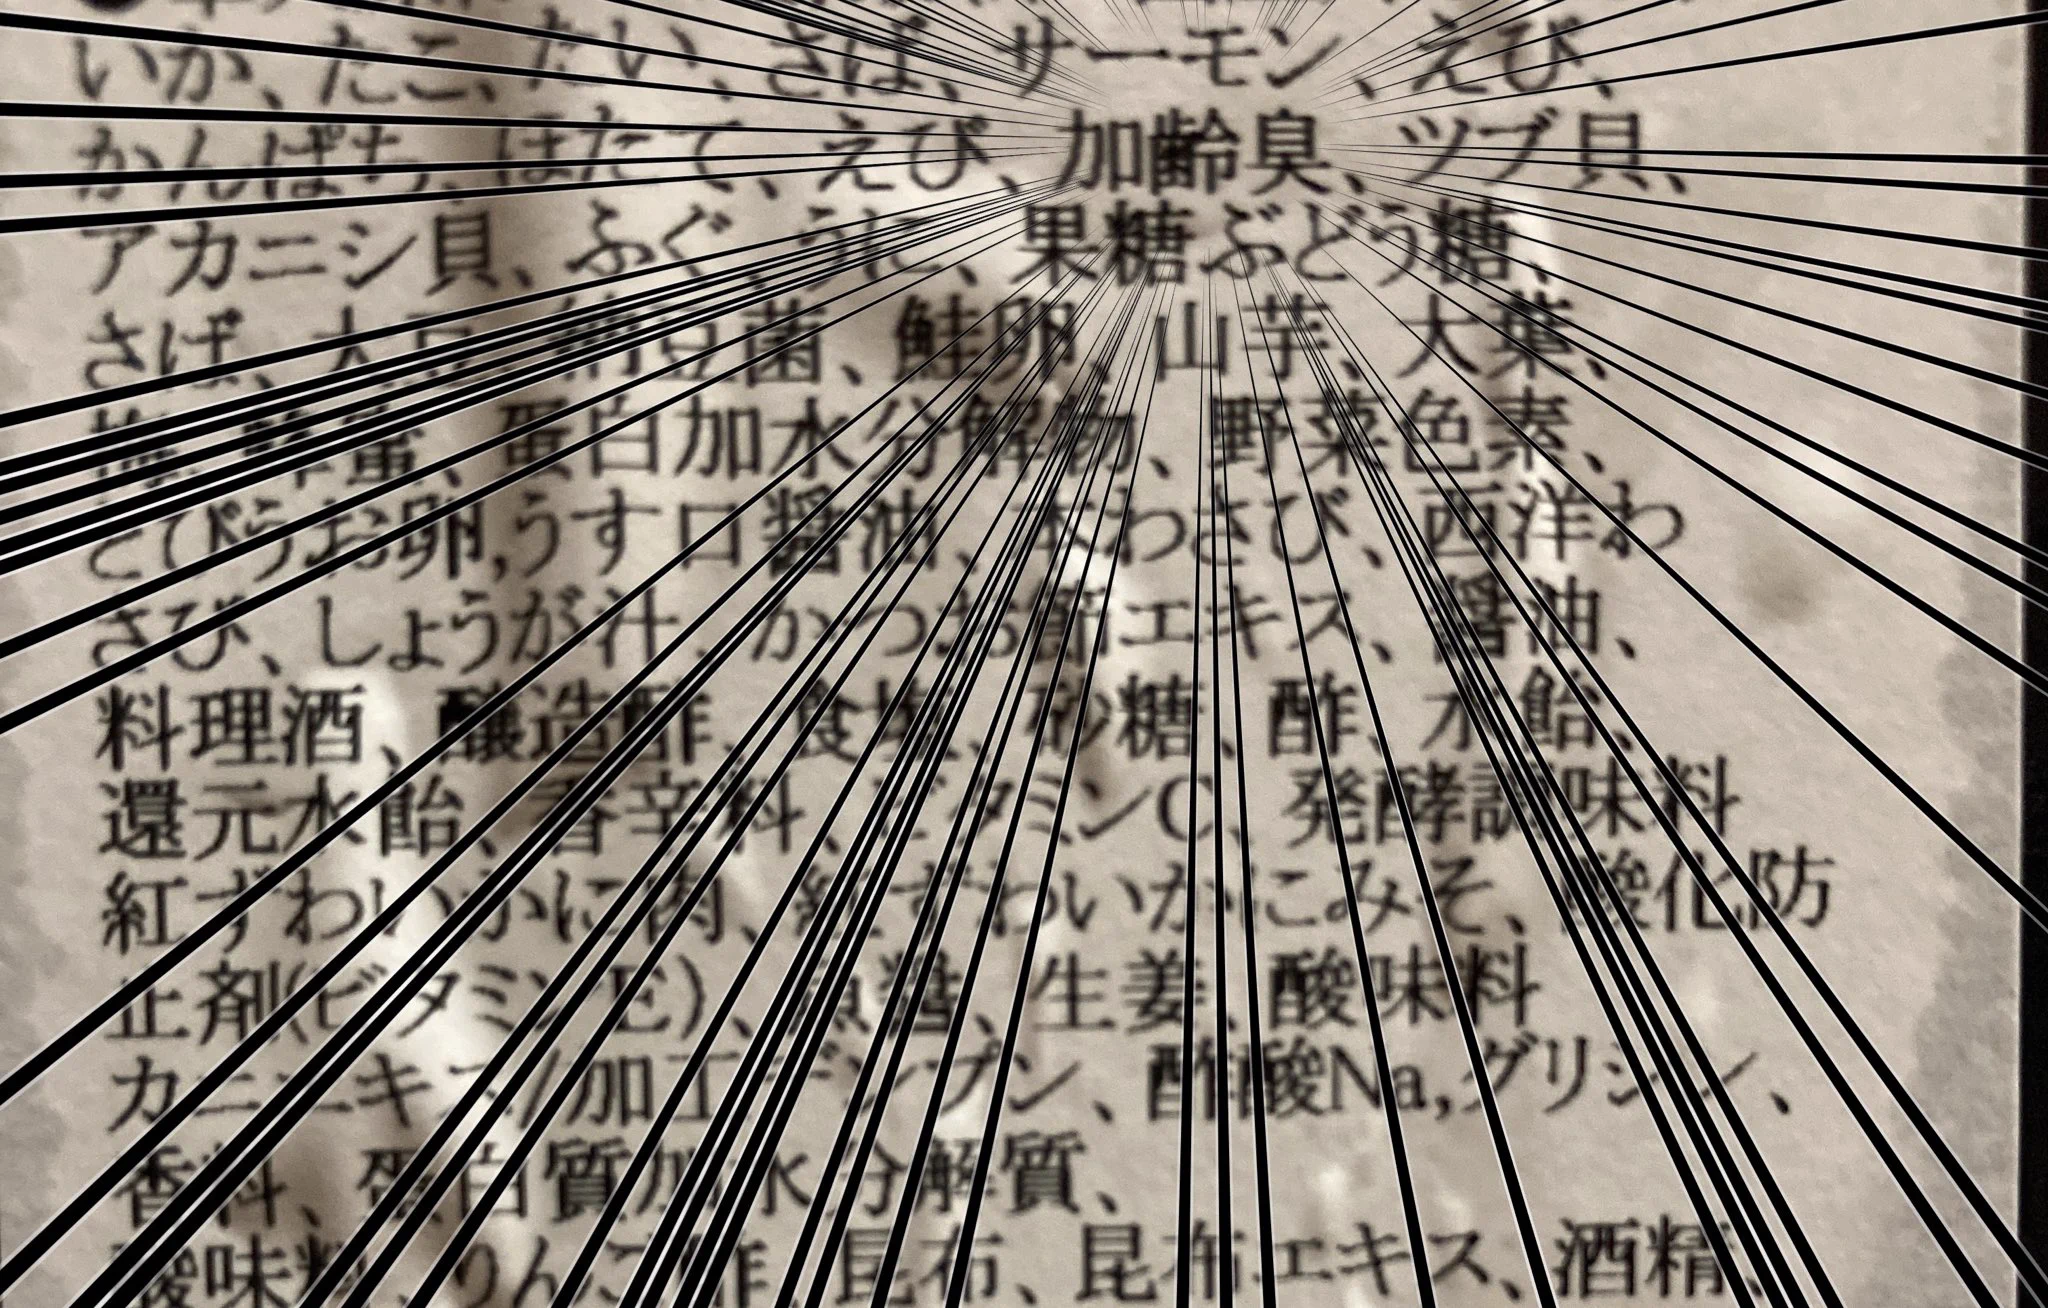 いか、たこ、たい、さば、サーモン、えび、
かんぱち、ほたて、えび、加齢臭、ツブ貝、
アカニシ貝、ふぐ、うに、果糖ぶどう糖、
さば、大豆、納豆菌、鮭卵、山芋、大葉、
蜂蜜、蛋白加水分解物、野菜色素、
とびらお卵,うす口醤油、本わさび、西洋わ
さび、しょうが汁、かつお節エキス、醤油、
料理酒、醸造酢、食塩、砂糖、酢、水飴、
還元水飴、香辛料、ビタミンC、発酵調味料
紅ずわいかに肉、紅ずわいがにこみそ、酸化防
止剤(ビタミンE)、魚醤、生姜、酸味料
カニエキス/加工デンプン、酢酸Na,グリシン、
香料、蛋白質加水分解質、
酸味料、りんご酢、昆布、昆布エキス、酒精、